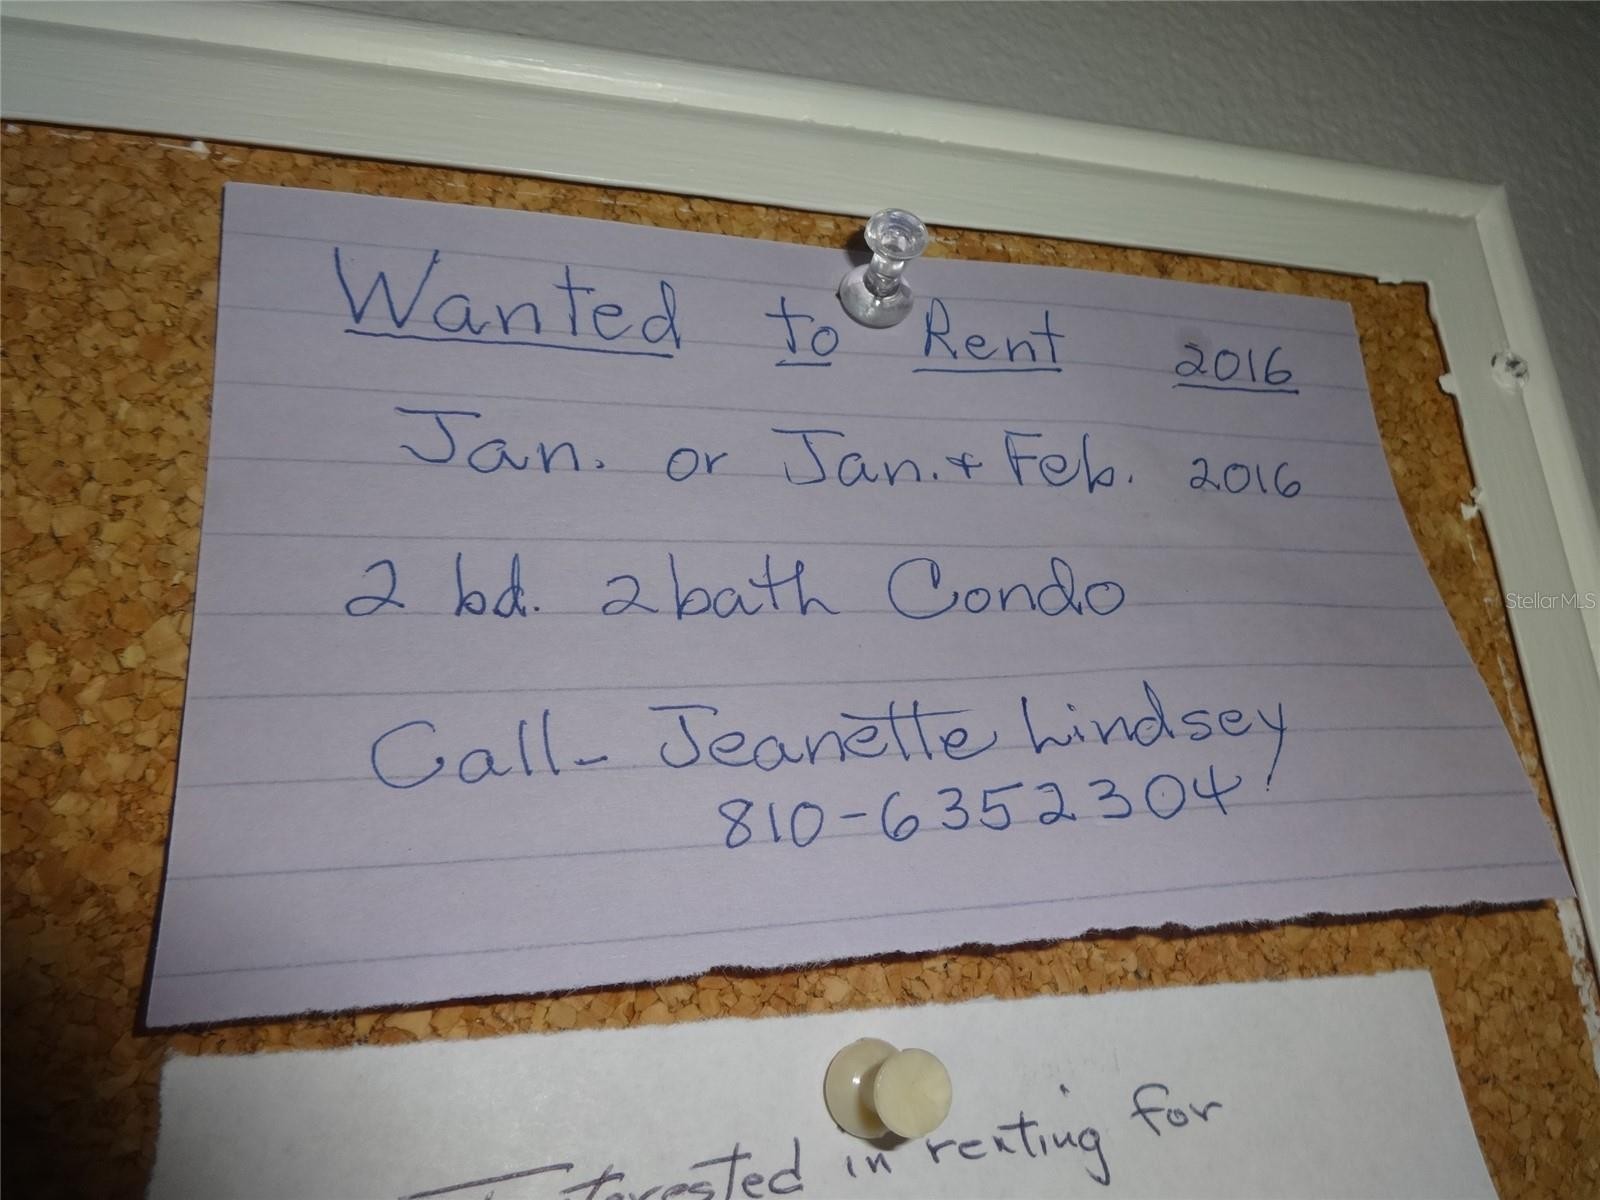 Wanted to Rent 2016
Jan. or Jan. + Feb. 2016
2 bd. 2 bath Condo
Call - Jeanette Lindsey
810-6352304
Interested in renting for
StellarMLS